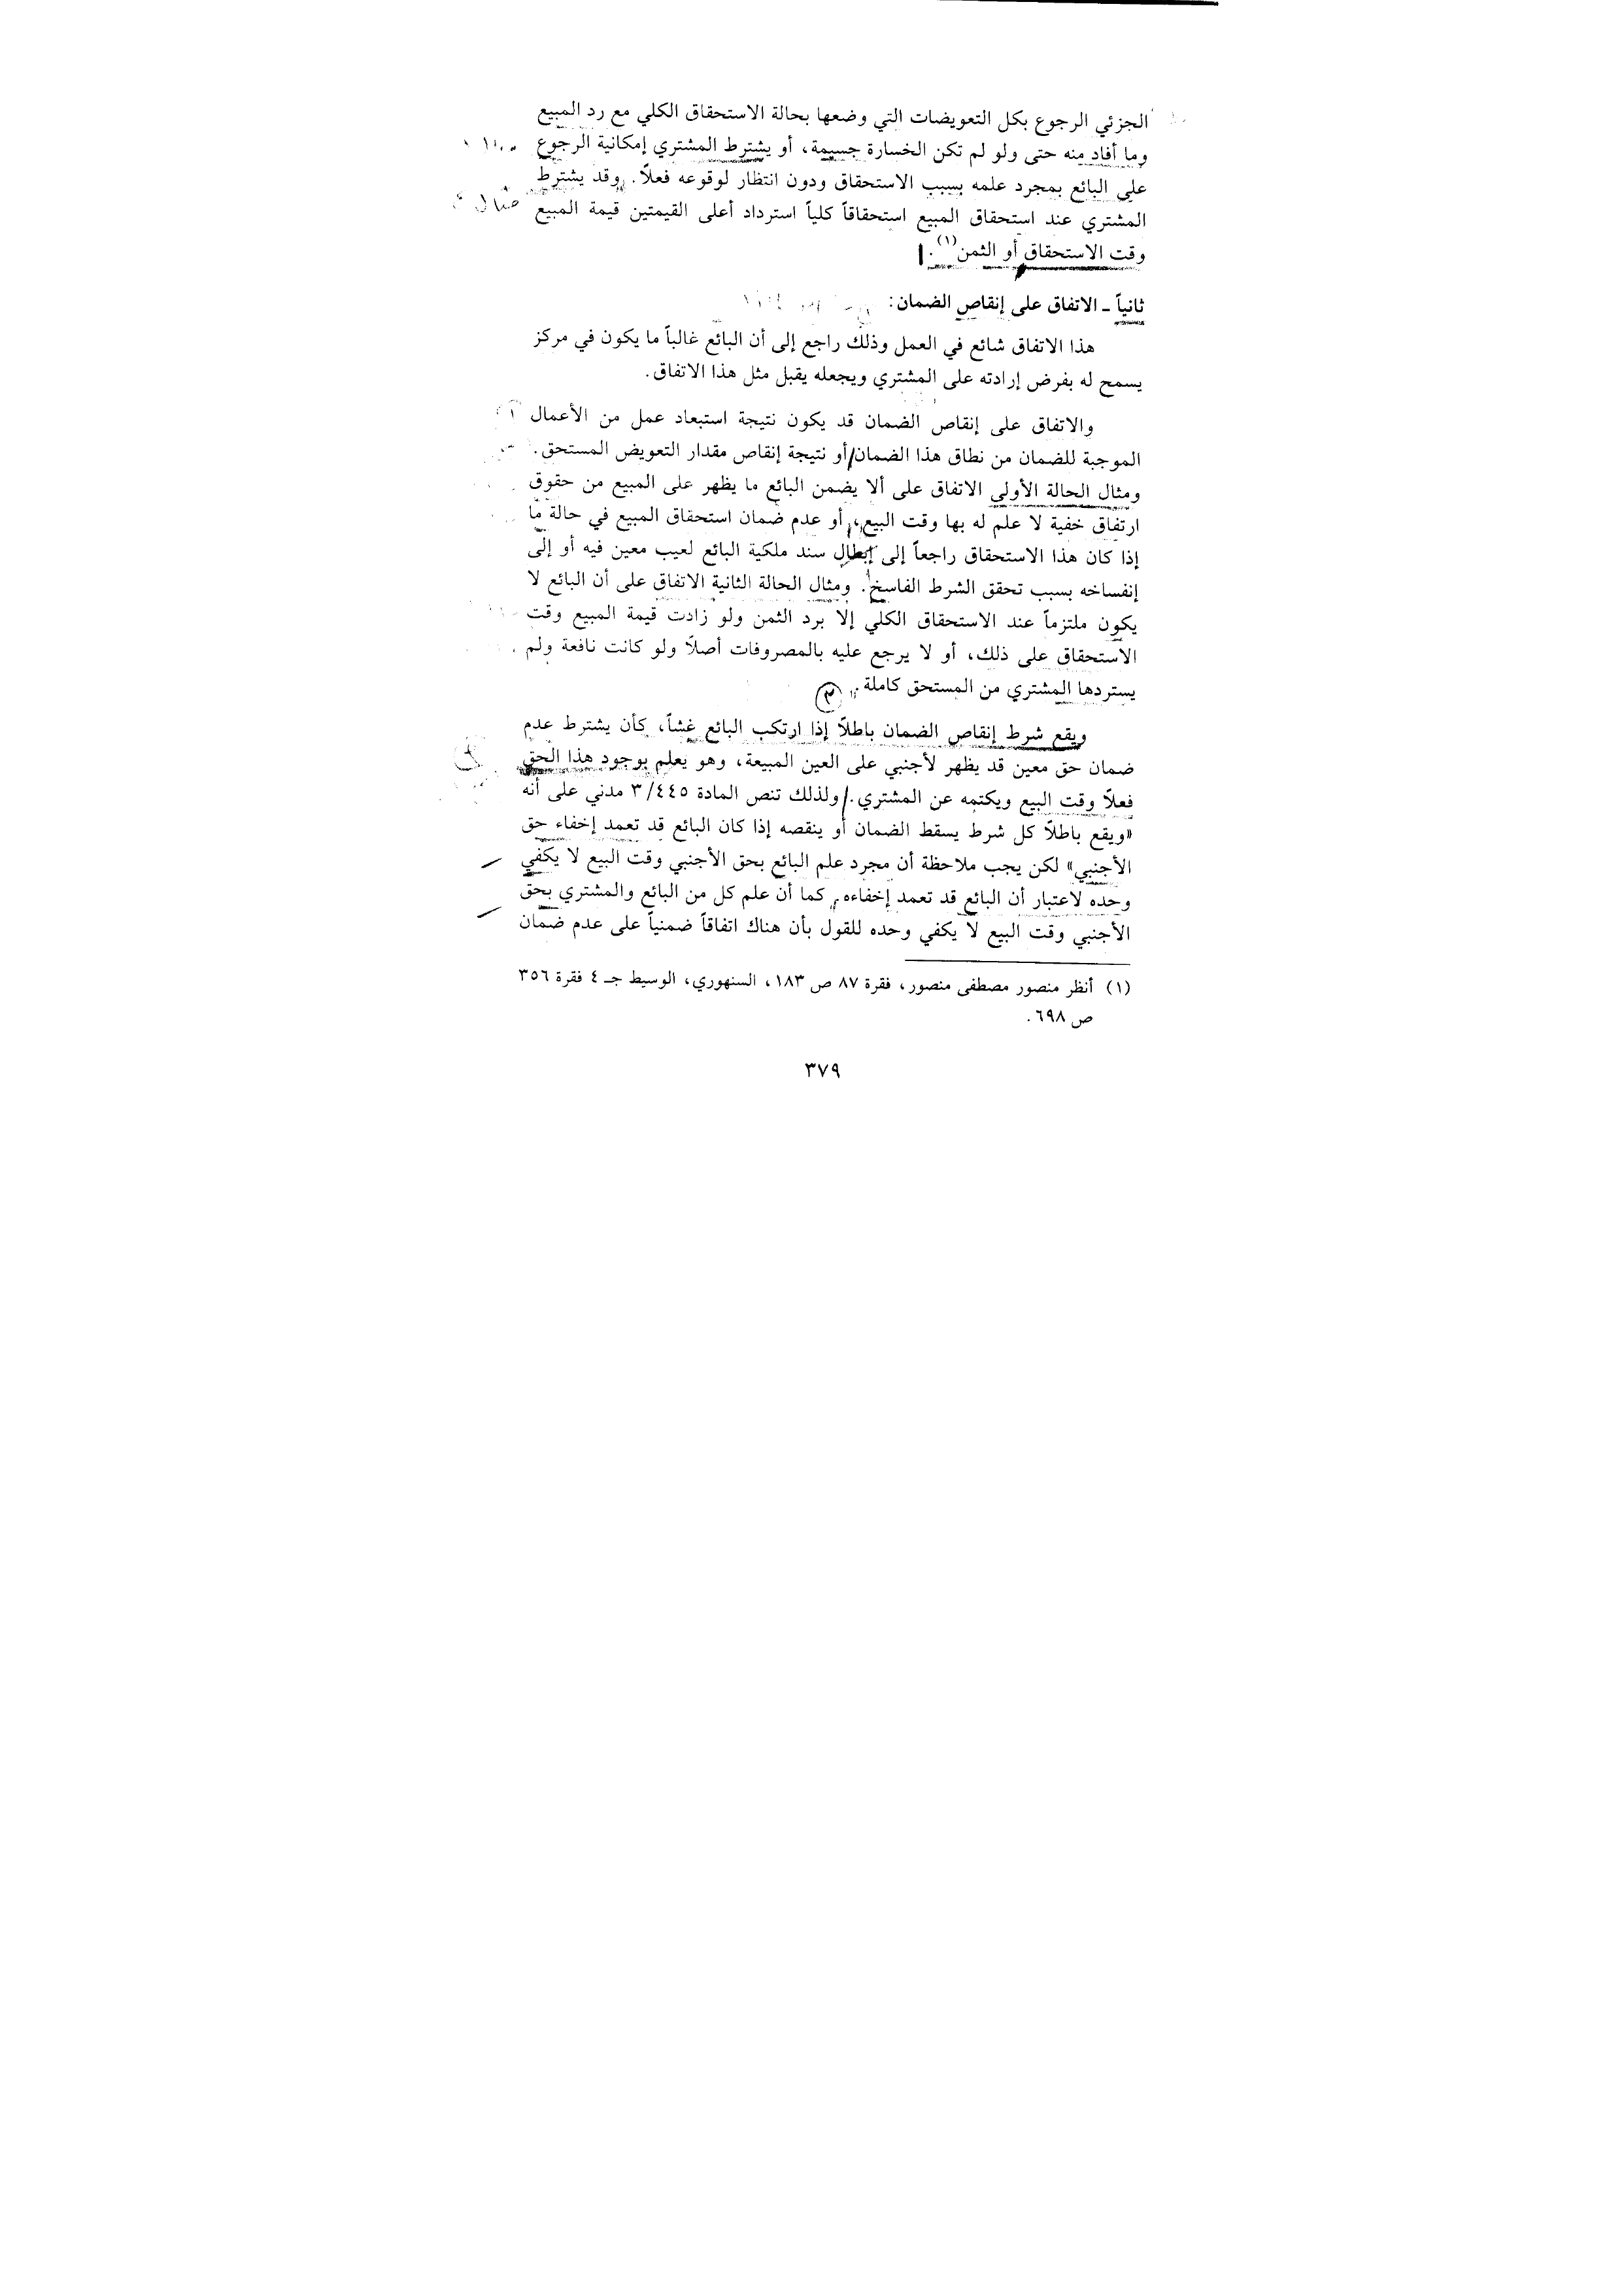 الجزئي الرجوع بكل التعويضات التي وضعها بحالة الاستحقاق الكلي مع رد المبيع
وما أفاد منه حتى ولو لم تكن الخسارة جسيمة، أو يشترط المشتري إمكانية الرجوع
على البائع بمجرد علمه بسبب الاستحقاق ودون انتظار لوقوعه فعلاً. وقد يشترط
المشتري عند استحقاق المبيع استحقاقاً كلياً استرداد أعلى القيمتين قيمة المبيع
وقت الاستحقاق أو الثمن(١).
ثانياً ـ الاتفاق على إنقاص الضمان:
هذا الاتفاق شائع في العمل وذلك راجع إلى أن البائع غالباً ما يكون في مركز
يسمح له بفرض إرادته على المشتري ويجعله يقبل مثل هذا الاتفاق.
والاتفاق على إنقاص الضمان قد يكون نتيجة استبعاد عمل من الأعمال
الموجبة للضمان من نطاق هذا الضمان/أو نتيجة إنقاص مقدار التعويض المستحق.
ومثال الحالة الأولى الاتفاق على ألا يضمن البائع ما يظهر على المبيع من حقوق
ارتفاق خفية لا علم له بها وقت البيع، أو عدم ضمان استحقاق المبيع في حالة ما
إذا كان هذا الاستحقاق راجعاً إلى إبطال سند ملكية البائع لعيب معين فيه أو إلى
إنفساخه بسبب تحقق الشرط الفاسخ. ومثال الحالة الثانية الاتفاق على أن البائع لا
يكون ملتزماً عند الاستحقاق الكلي إلا برد الثمن ولو زادت قيمة المبيع وقت
الاستحقاق على ذلك، أو لا يرجع عليه بالمصروفات أصلاً ولو كانت نافعة ولم
يستردها المشتري من المستحق كاملة.
ويقع شرط إنقاص الضمان باطلاً إذا ارتكب البائع غشاً، كأن يشترط عدم
ضمان حق معين قد يظهر لأجنبي على العين المبيعة، وهو يعلم بوجود هذا الحق
فعلاً وقت البيع ويكتمه عن المشتري./ولذلك تنص المادة ٣/٤٤٥ مدني على أنه
«ويقع باطلاً كل شرط يسقط الضمان أو ينقصه إذا كان البائع قد تعمد إخفاء حق
الأجنبي» لكن يجب ملاحظة أن مجرد علم البائع بحق الأجنبي وقت البيع لا يكفي
وحده لاعتبار أن البائع قد تعمد إخفاءه، كما أن علم كل من البائع والمشتري بحق
الأجنبي وقت البيع لا يكفي وحده للقول بأن هناك اتفاقاً ضمنياً على عدم ضمان
(١) أنظر منصور مصطفى منصور، فقرة ٨٧ ص ١٨٣، السنهوري، الوسيط جـ ٤ فقرة ٣٥٦
ص ٦٩٨.
٣٧٩